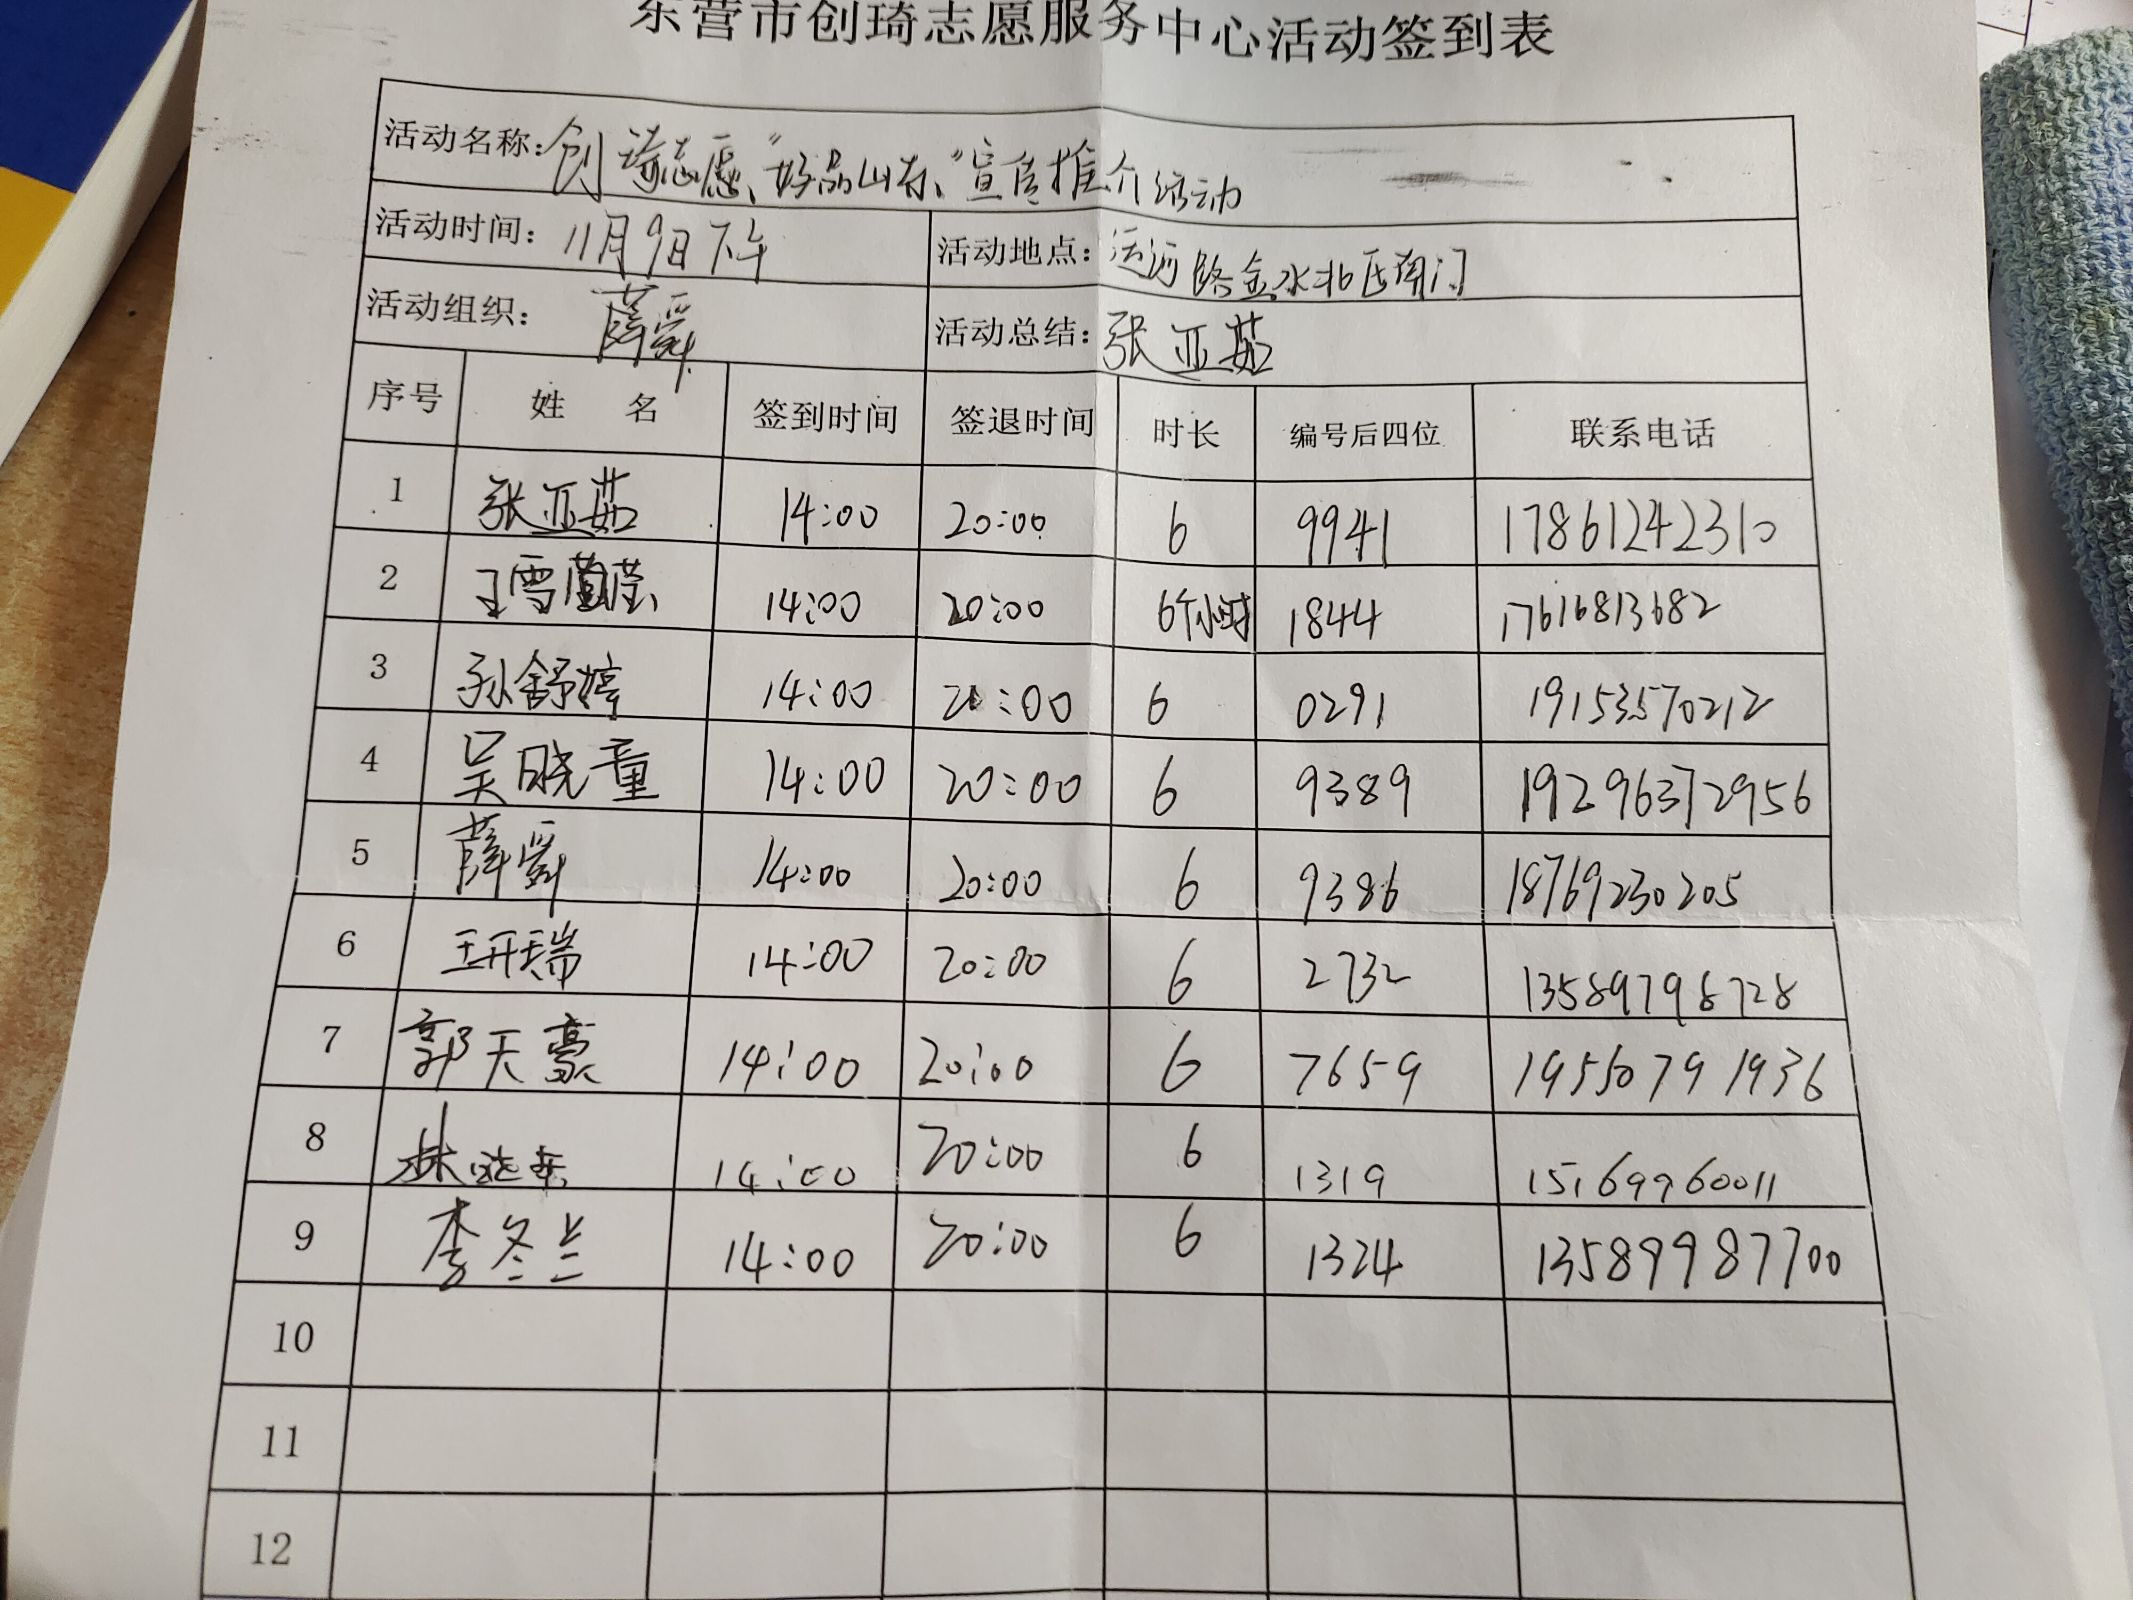 东营市创琦志愿服务中心活动签到表
活动名称：创琦志愿、“好品山东”宣传推介活动
活动时间：11月9日下午 活动地点：运河路金水北区南门
活动组织：薛舜 活动总结：张亚茹
序号 姓 名 签到时间 签退时间 时长 编号后四位 联系电话
1 张亚茹 14:00 20:00 6 9941 17861242310
2 王雪莹 14:00 20:00 6个小时 1844 17616813682
3 孙舒婷 14:00 20:00 6 0291 19153570212
4 吴晓童 14:00 20:00 6 9389 19296372956
5 薛舜 14:00 20:00 6 9386 18769230205
6 王开瑞 14:00 20:00 6 2732 13589798728
7 郭天豪 14:00 20:00 6 7659 19550791936
8 14:00 20:00 6 1319 15169960011
9 李冬兰 14:00 20:00 6 1324 13589987700
10
11
12